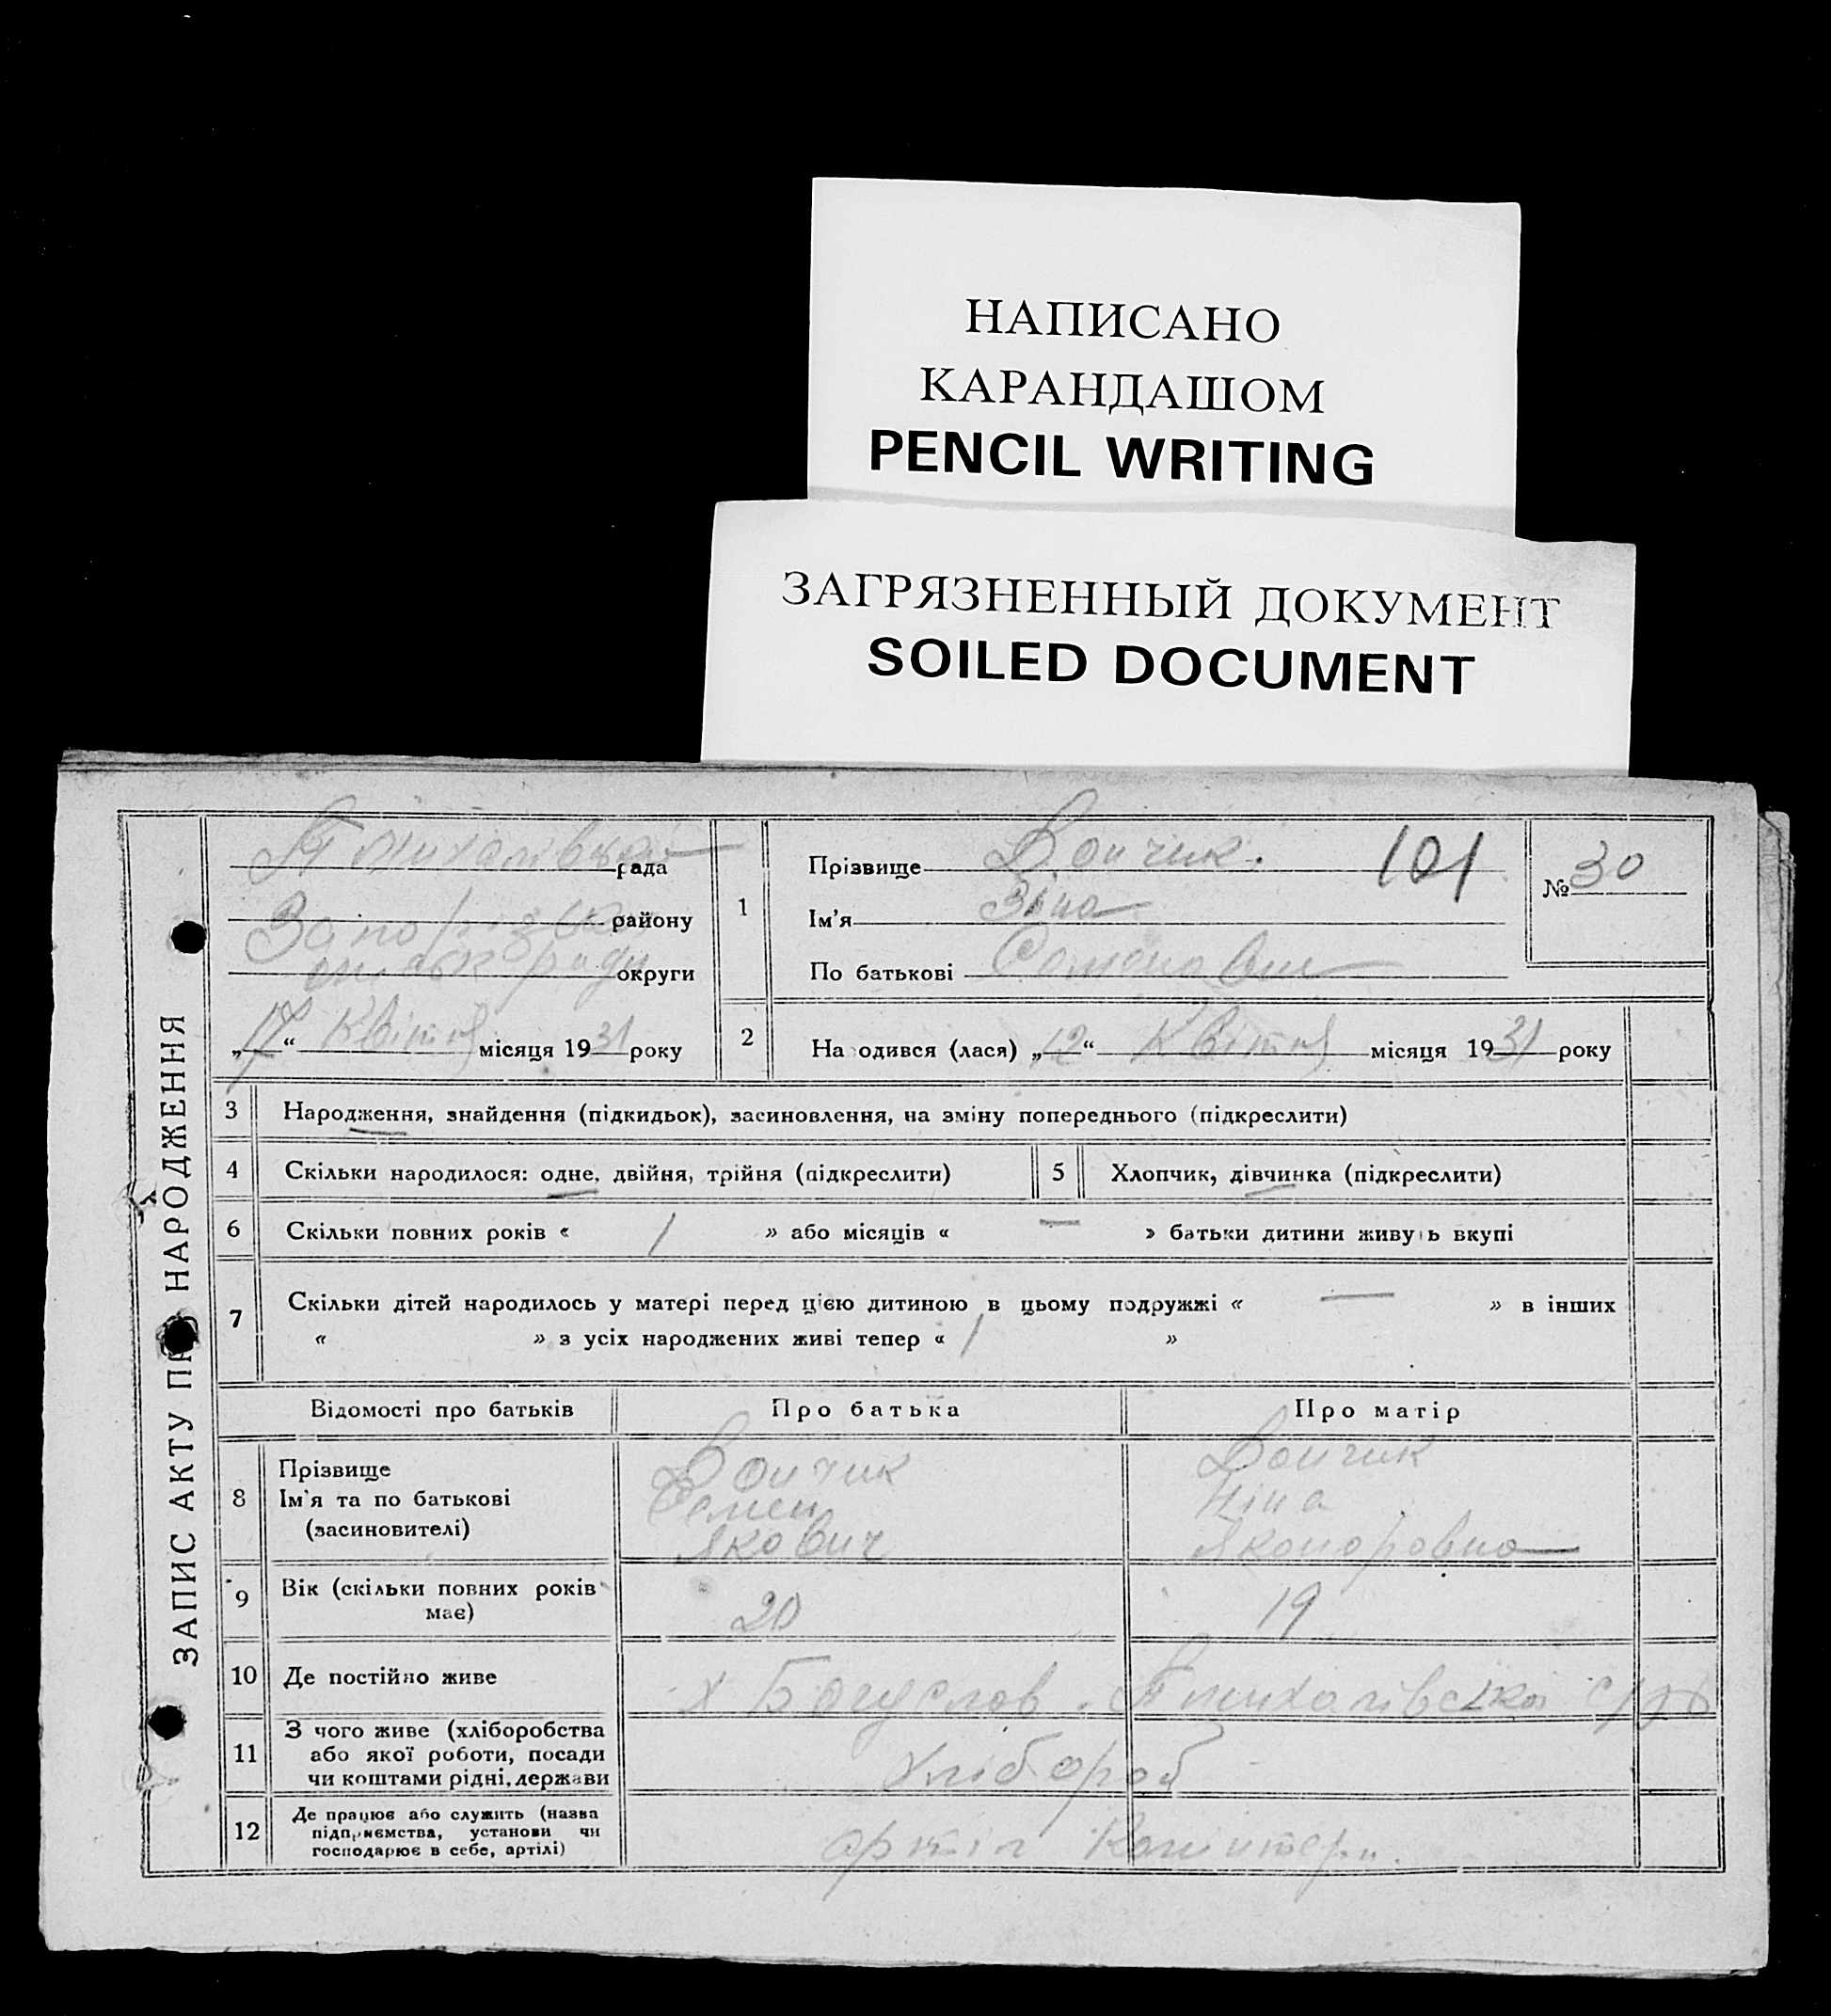 НАПИСАНО
КАРАНДАШОМ
PENCIL WRITING
ЗАГРЯЗНЕННЫЙ ДОКУМЕНТ
SOILED DOCUMENT
ЗАПИС АКТУ ПР НАРОДЖЕННЯ
рада
району
округи
„17“ Квітня місяця 1931 року
1
Прізвище 101
Ім'я Зіна
По батькові
№ 30
2
На одився (лася) „12“ Квітня місяця 1931 року
3 Народження, знайдення (підкидьок), засиновлення, на зміну попереднього (підкреслити)
4 Скільки народилося: одне, двійня, трійня (підкреслити)
5 Хлопчик, дівчинка (підкреслити)
6 Скільки повних років « / » або місяців « — » батьки дитини живу ь вкупі
7 Скільки дітей народилось у матері перед цією дитиною в цьому подружжі « — » в інших
« » з усіх народжених живі тепер « / »
Відомості про батьків
Про батька
Про матір
8 Прізвище
Ім'я та по батькові
(засиновителі)
Семен
Якович
Ніна
9 Вік (скільки повних років
має)
20
19
10 Де постійно живе
х Богуслов
11 З чого живе (хліборобства
або якої роботи, посади
чи коштами рідні, держави
Хлібороб
12 Де працює або служить (назва
підприємства, установи чи
господарює в себе, артілі)
артіл